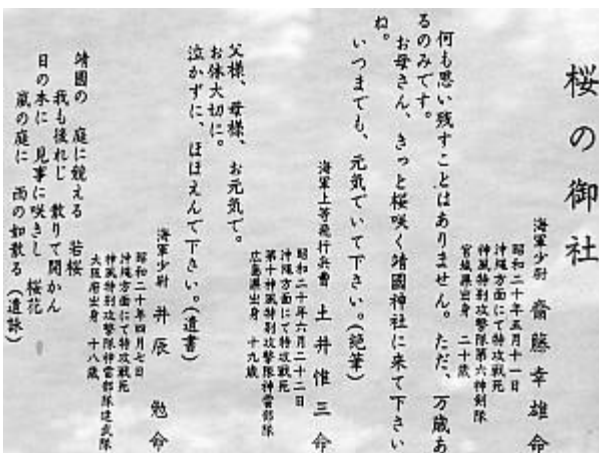 桜の御社
海軍少尉 齋藤幸雄命
昭和二十年五月十一日
沖縄方面にて特攻戦死
神風特別攻撃隊第六神剣隊
宮城県出身 二十歳
何も思い残すことはありません。ただ、万歳あ
るのみです。
お母さん、きっと桜咲く靖國神社に来て下さい
ね。
いつまでも、元気でいて下さい。(絶筆)
海軍上等飛行兵曹 土井惟三命
昭和二十年六月二十二日
沖縄方面にて特攻戦死
第十神風特別攻撃隊神雷部隊
広島県出身 十九歳
父様、母様、お元気で。
お体大切に。
泣かずに、ほほえんで下さい。(遺書)
海軍少尉 井辰勉命
昭和二十年四月七日
沖縄方面にて特攻戦死
神風特別攻撃隊神雷部隊建武隊
大阪府出身 十八歳
靖國の 庭に競える 若桜
我も後れじ 散りて開かん
日の本に 見事に咲きし 桜花
嵐の庭に 雨の如散る(遺詠)